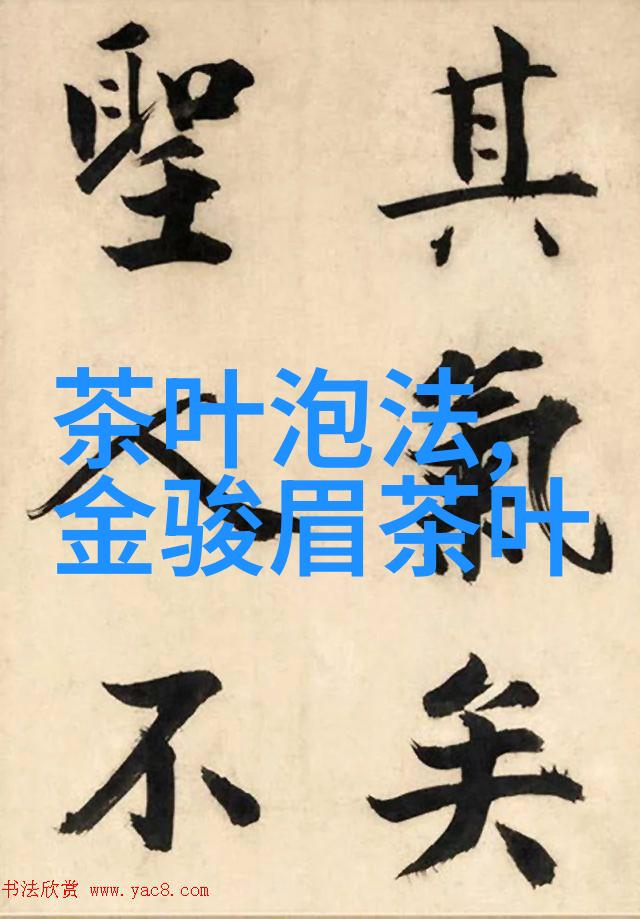 其氣矣
聖人不
茶叶泡法,
金骏眉茶叶
书法欣赏 www.yac8.com